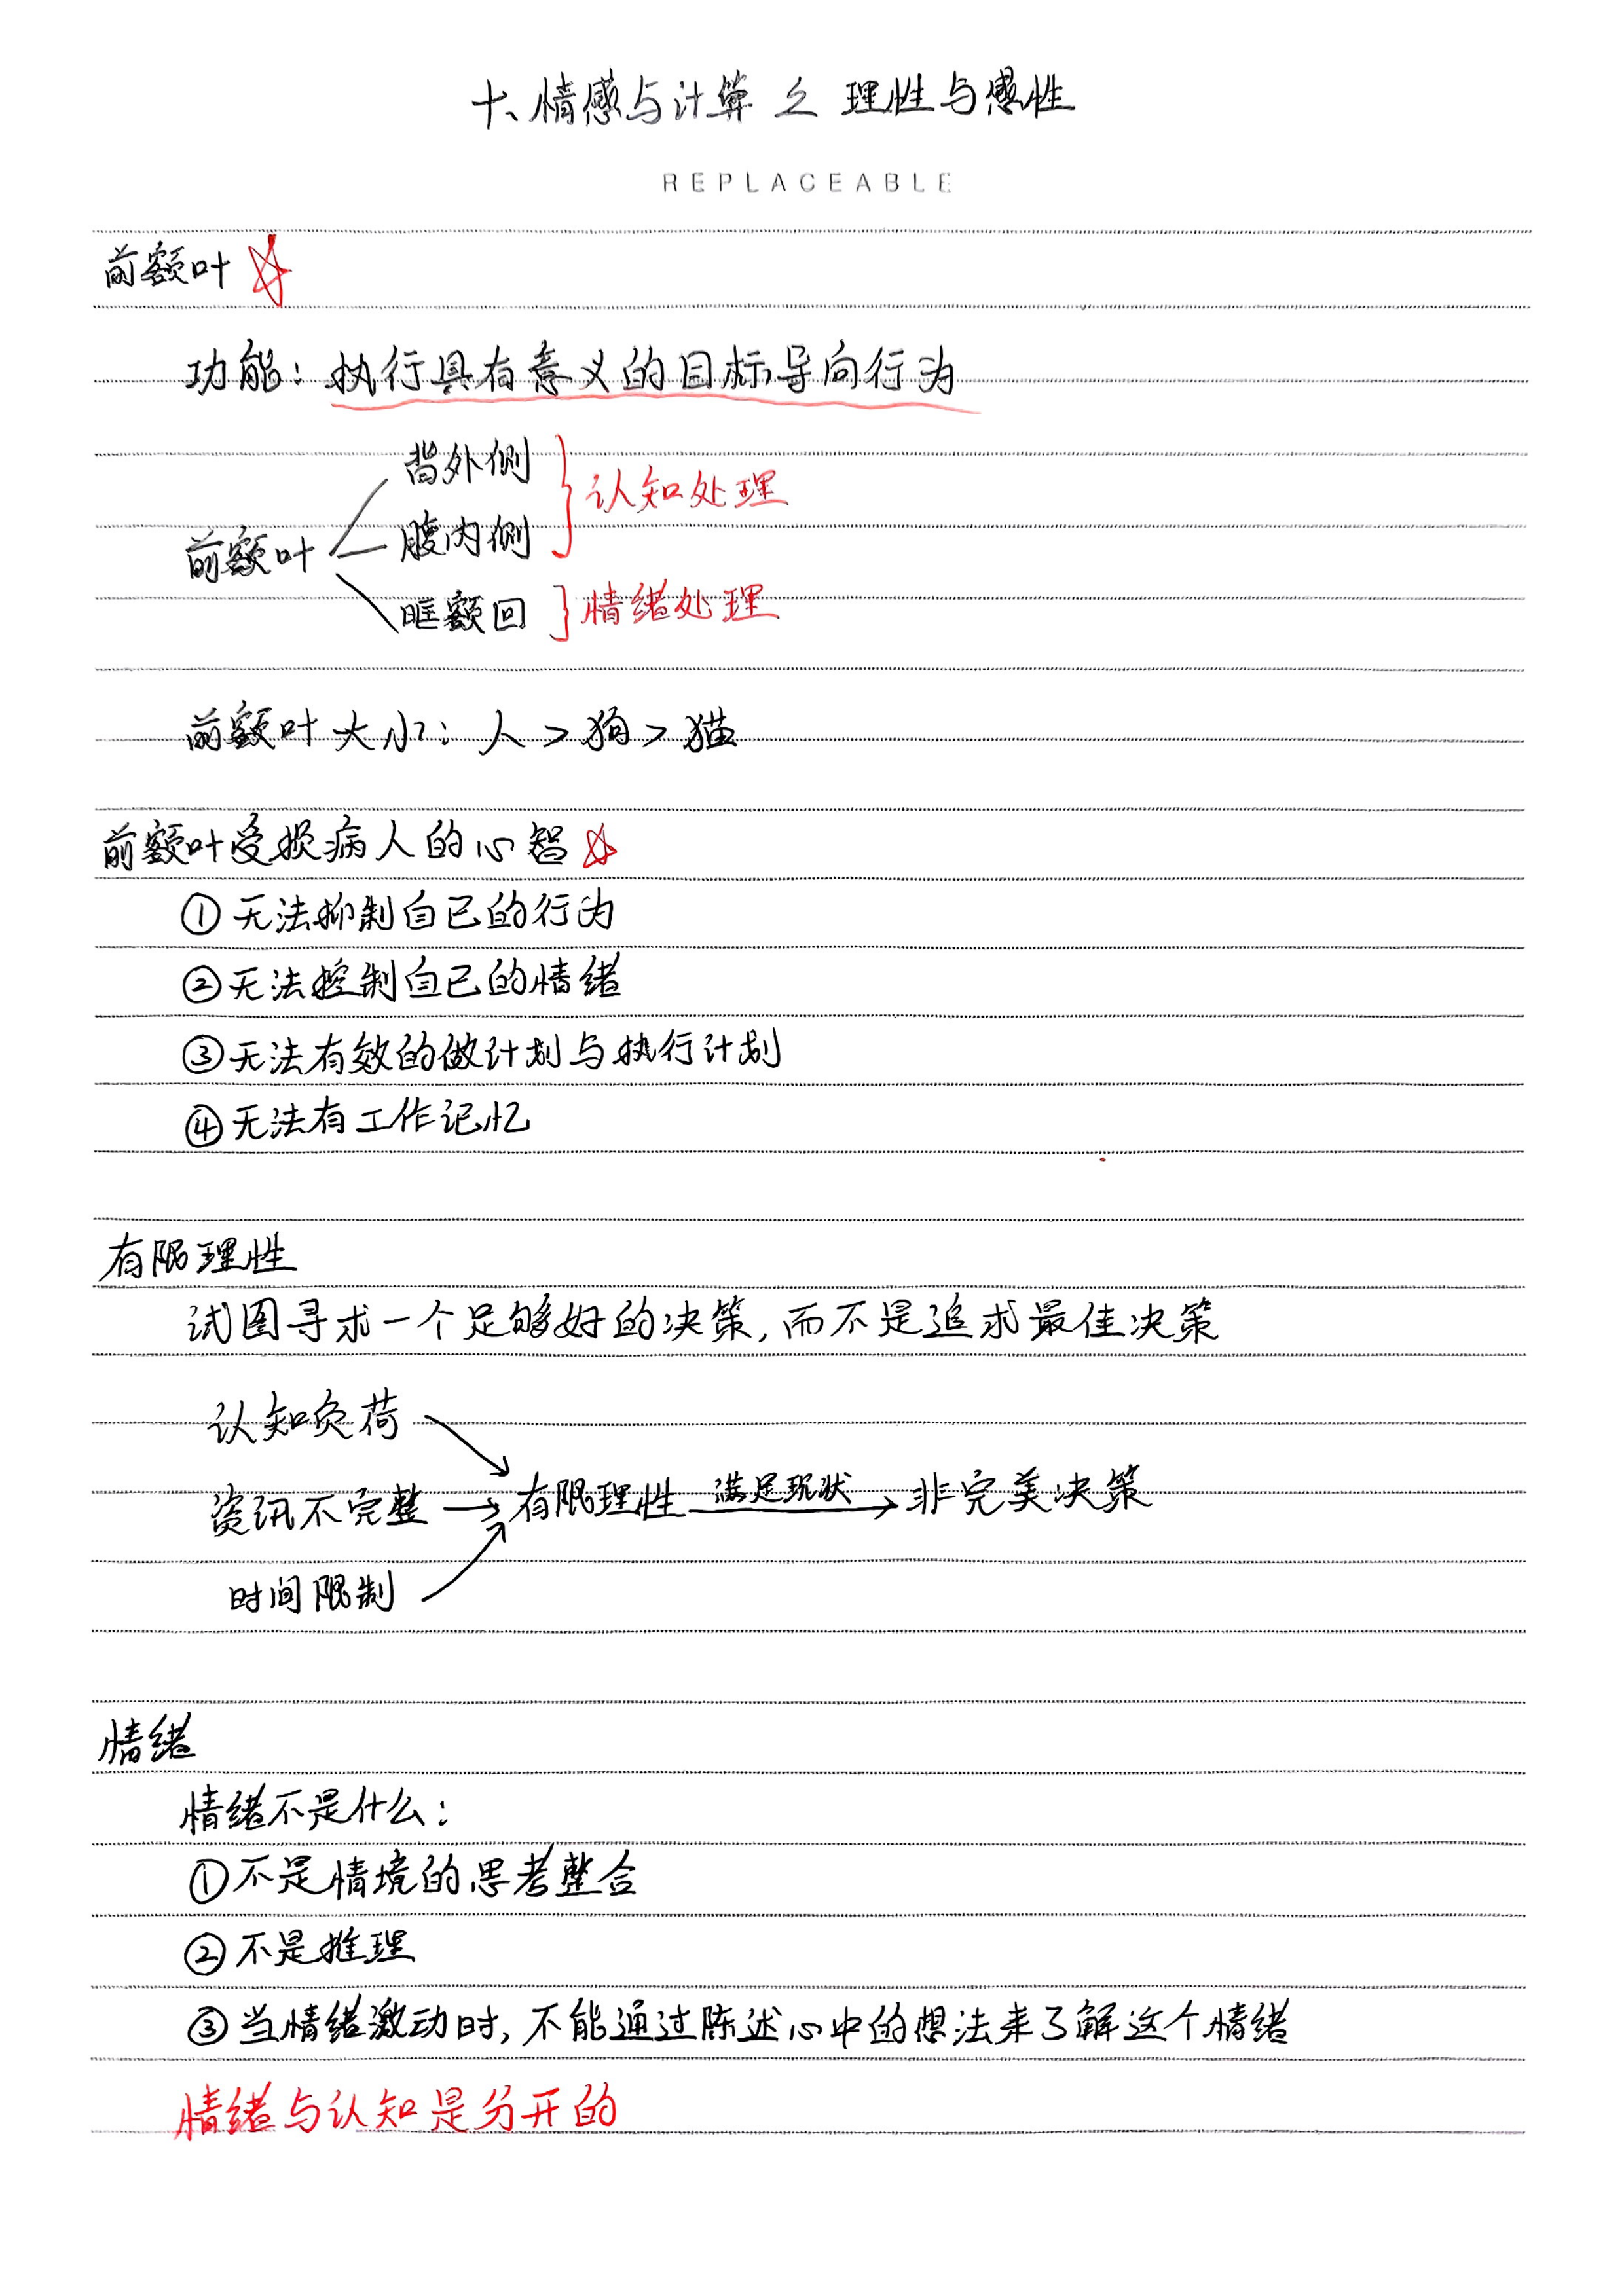 十、情感与计算之理性与感性
REPLACEABLE
前额叶
功能：执行具有意义的目标导向行为
背外侧
认知处理
前额叶
腹内侧
眶额回
情绪处理
前额叶大小：人＞狗＞猫
前额叶受损病人的心智
①无法抑制自己的行为
②无法控制自己的情绪
③无法有效的做计划与执行计划
④无法有工作记忆
有限理性
试图寻求一个足够好的决策，而不是追求最佳决策
认知负荷
资讯不完整→有限理性 满足现状→非完美决策
时间限制
情绪
情绪不是什么：
①不是情境的思考整合
②不是推理
③当情绪激动时，不能通过陈述心中的想法来了解这个情绪
情绪与认知是分开的